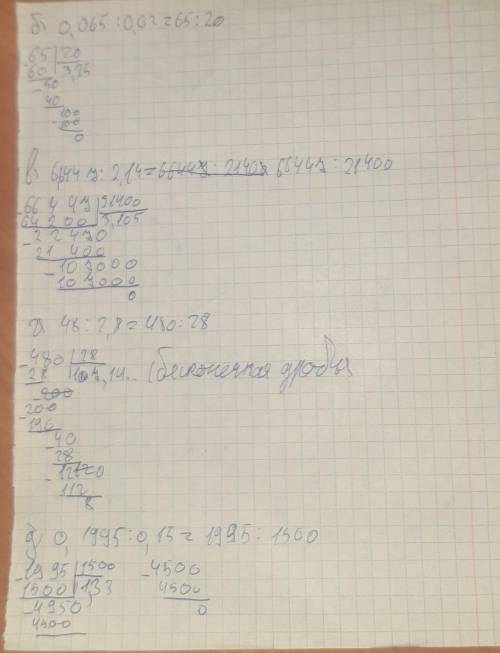 б) 0,065 : 0,02 = 65 : 20
-65 | 20
60 | 3,25
-50
40
-100
100
0
в) 6644 : 2,14 = 66447 : 21400
-66447 | 21400
64200 | 3,105
-22470
21400
-107000
107000
0
г) 48 : 2,8 = 480 : 28
-480 | 28
28 | 17,14... (бесконечная дробь)
-200
196
-40
28
-120
112
8
д) 0,1995 : 0,15 = 1995 : 1500
-1995 | 1500
1500 | 1,33
-4950
4500
-4500
4500
0